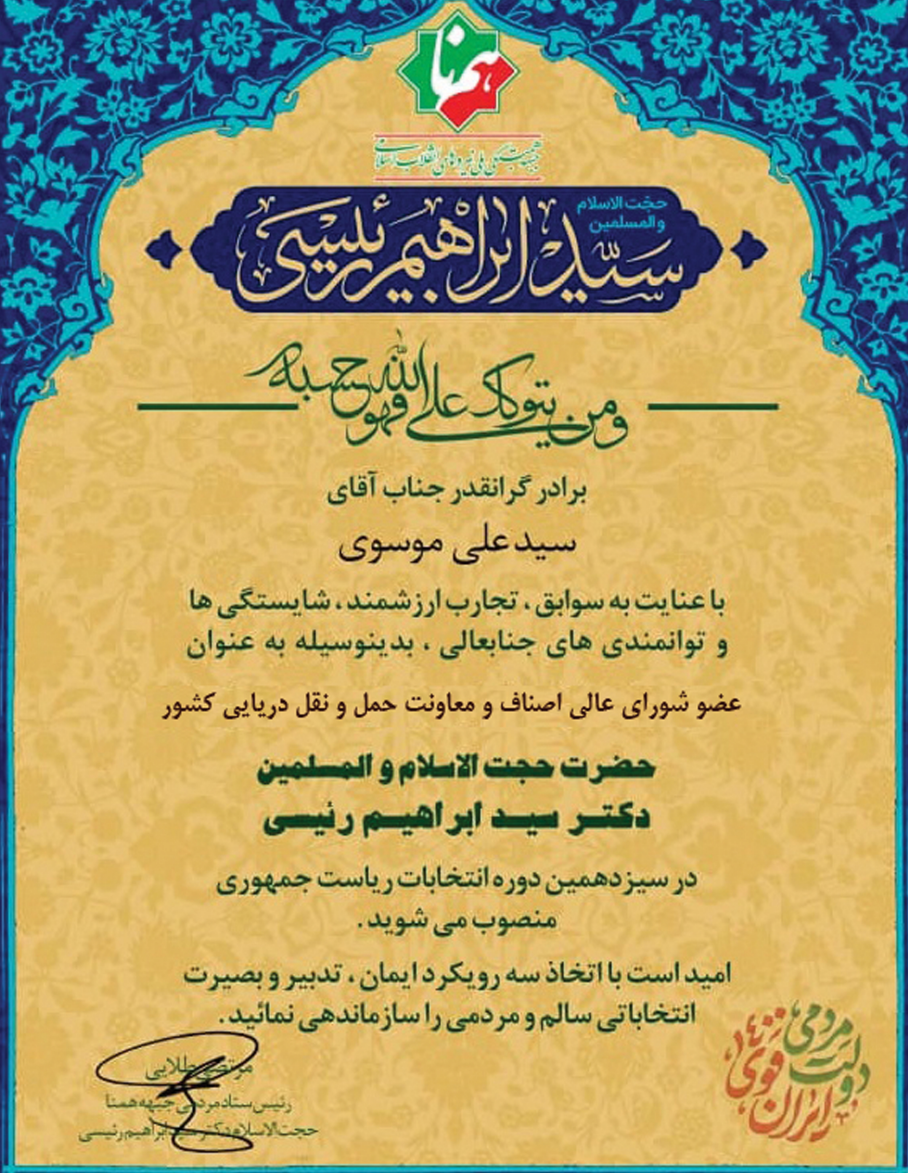 همنا
جبهه همبستگی ملی نیروهای انقلاب اسلامی
حجّت الاسلام
و المسلمین
سیّد ابراهیم رئیسی
ومن یتوکل علی الله فهو حسبه
برادر گرانقدر جناب آقای
سید علی موسوی
با عنایت به سوابق ، تجارب ارزشمند ، شایستگی ها
و توانمندی های جنابعالی ، بدینوسیله به عنوان
عضو شورای عالی اصناف و معاونت حمل و نقل دریایی کشور
حضرت حجت الاسلام و المسلمین
دکتر سید ابراهیم رئیسی
در سیزدهمین دوره انتخابات ریاست جمهوری
منصوب می شوید .
امید است با اتخاذ سه رویکرد ایمان ، تدبیر و بصیرت
انتخاباتی سالم و مردمی را سازماندهی نمائید .
مرتضی طلایی
رئیس ستاد مردمی جبهه همنا
حجت الاسلام دکتر سید ابراهیم رئیسی
دولت مردمی
ایران قوی
۱۴۰۰